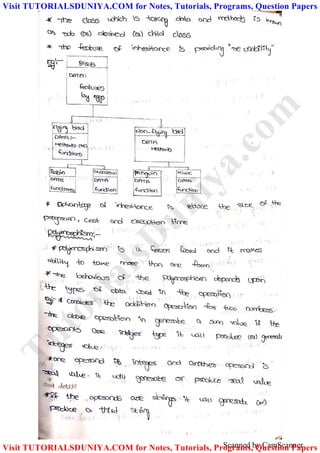 Visit TUTORIALSDUNIYA.COM for Notes, Tutorials, Programs, Question Papers
* The class which is taking data and methods is known
as sub (or) derived (or) child class
* the feature of inheritance is providing "re usability"
Eg:-
Birds
DATA:
features
by egg
Flying bird
DATA:-
Methods (or)
functions
Non-flying bird
DATA
Methods
Robin
DATA
Functions
DATA
function
penguin
DATA
Function
DATA
function
* Advantage of inheritance is reduce the size of the
program, cost and execution time
Polymorphism:-
* polymorphism is a Greek word and it makes
ability to take more than one form
* The behaviour of the polymorphism depends upon
the types of data used in the operation
Eg: * consider the addition operation for two numbers.
The above operation in generate a sum value if the
operants are integer type it will produce (or) generate
integer value.
* one operand is integer and another operand is
real value. it will generate or produce real value
* If the operands are strings it will generate (or)
produce a third string
Scanned by CamScanner
Visit TUTORIALSDUNIYA.COM for Notes, Tutorials, Programs, Question Papers